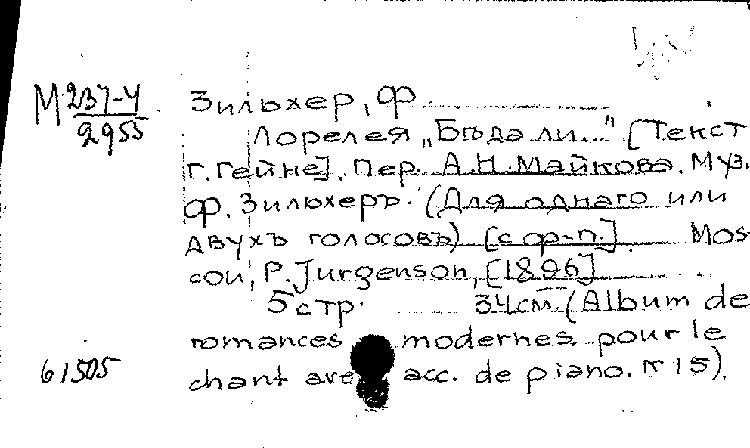 М 237-4 Зильхер, Ф.
2955
Лорелея „Бѣда ли..." [Текст
Г. Гейне]. Пер. А.Н. Майкова. Муз.
Ф. Зильхеръ. (Для однаго или
двухъ голосовъ) [с ф-п.]. Mos-
cou, P. Jurgenson, [1896]
5 стр. 34 см. (Album de
romances modernes pour le
61505
chant acc. de piano. № 15).